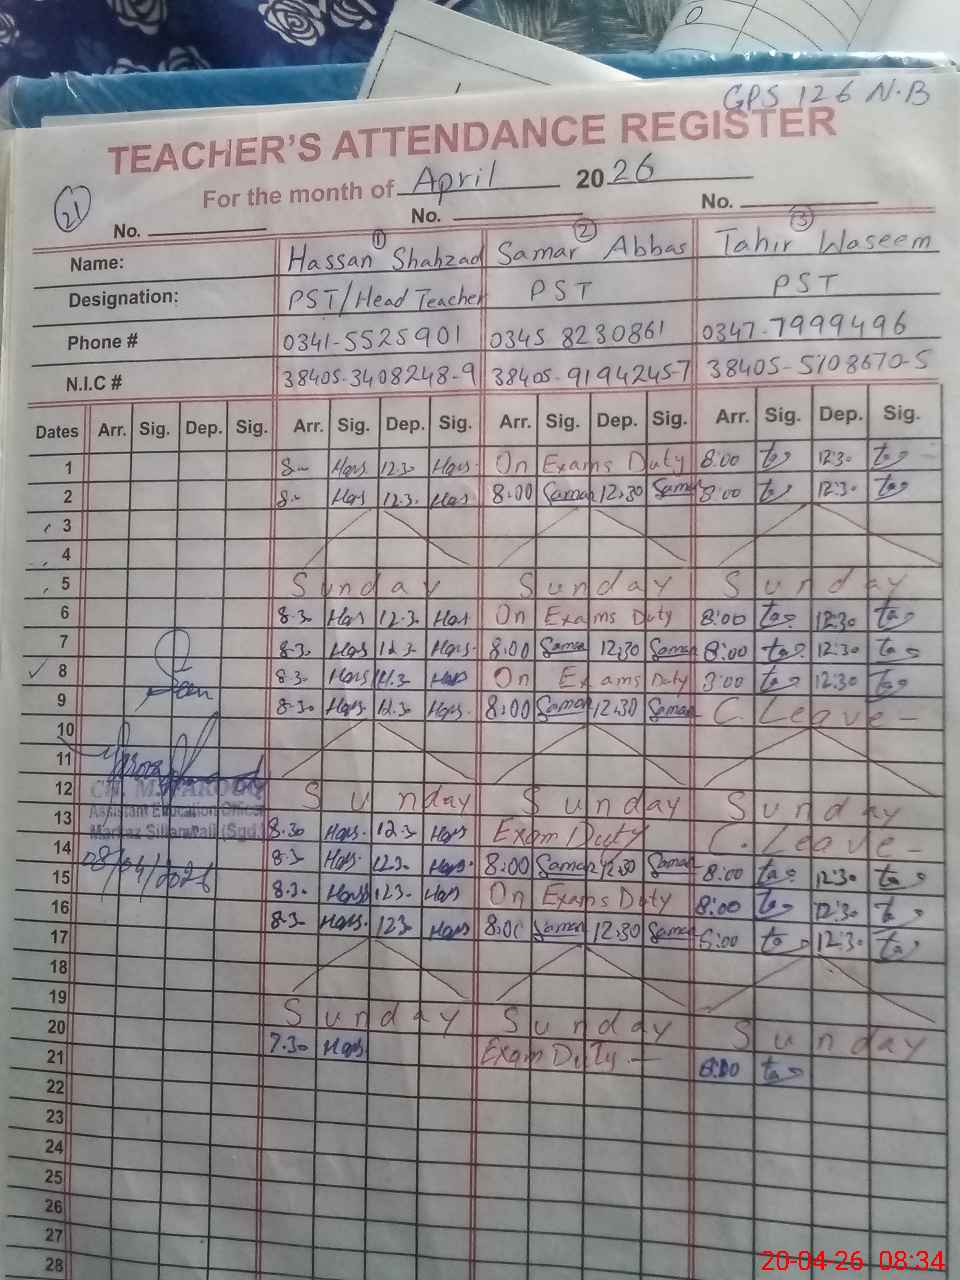 GPS 126 N.B
TEACHER'S ATTENDANCE REGISTER
For the month of April 2026
21
No. No. No.
1 2 3
Name: Hassan Shahzad Samar Abbas Tahir Waseem
Designation: PST/Head Teacher PST PST
Phone # 0341-5525901 0345 8230861 0347-7999496
N.I.C # 38405-3408248-9 38405-9194245-7 38405-5108670-5
Dates Arr. Sig. Dep. Sig. Arr. Sig. Dep. Sig. Arr. Sig. Dep. Sig. Arr. Sig. Dep. Sig.
1 8- Hars 12.3 Hars On Exams Duty 8:00 12:30
2 8- Hars 12.3 Hars 8:00 Samar 12.30 Samar 8:00 12:30
3
4
5 Sunday Sunday Sunday
6 8.30 Hars 12.3 Hars On Exams Duty 8:00 12:30
7 8.30 Hars 12.3 Hars 8:00 Samar 12.30 Samar 8:00 12:30
8 8.30 Hars 12.3 Hars On Exams Duty 8:00 12:30
9 8.30 Hars 12.3 Hars 8:00 Samar 12.30 Samar C. Leave -
10
11
12 Sunday Sunday Sunday
13 8.30 Hars 12.3 Hars Exam Duty C. Leave -
14 8.30 Hars 12.3 Hars 8:00 Samar 12.30 Samar 8:00 12:30
15 8.30 Hars 12.3 Hars On Exams Duty 8:00 12:30
16 8.30 Hars 12.3 Hars 8:00 Samar 12.30 Samar 8:00 12:30
17
18
19 Sunday Sunday Sunday
20 7.30 Hars Exam Duty - 8:00
21
22
23
24
25
26
27
28
CH. M. FAROOQ
Assistant Education Officer
Markaz Sillanwali (Sgd.)
08/04/2026
20-04-26 08:34